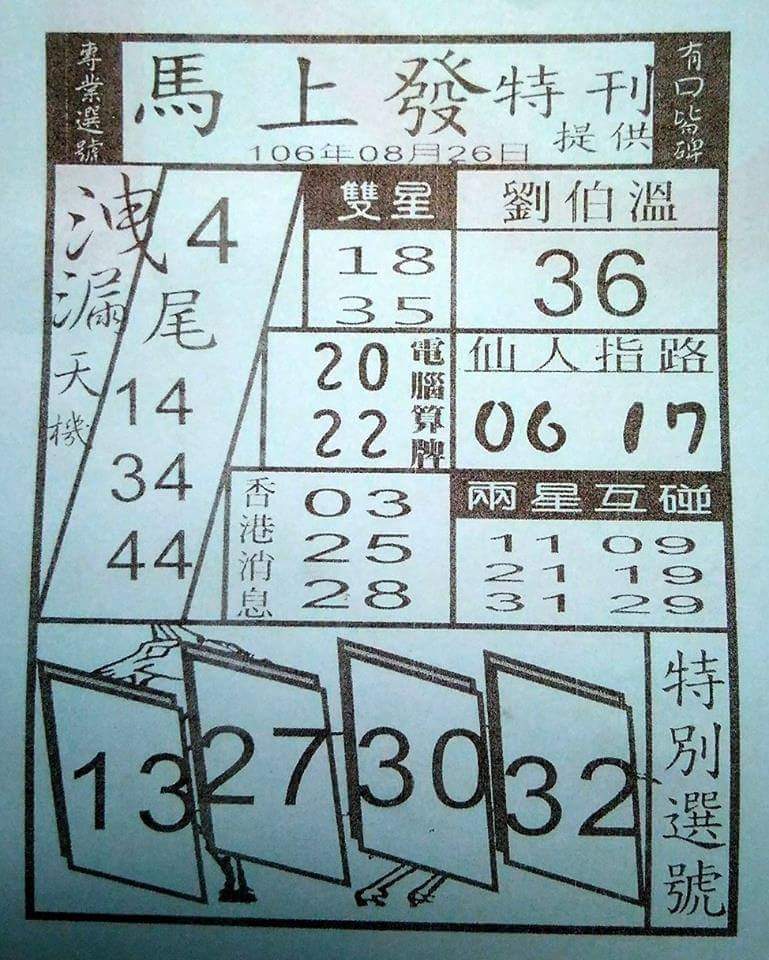 專業選號
馬上發特刊
提供
106年08月26日
有口皆碑
洩漏天機
4
尾
14
34
44
雙星
18
35
劉伯溫
36
電腦算牌
20
22
仙人指路
06 17
香港消息
03
25
28
兩星互碰
11 09
21 19
31 29
13 27 30 32
特別選號